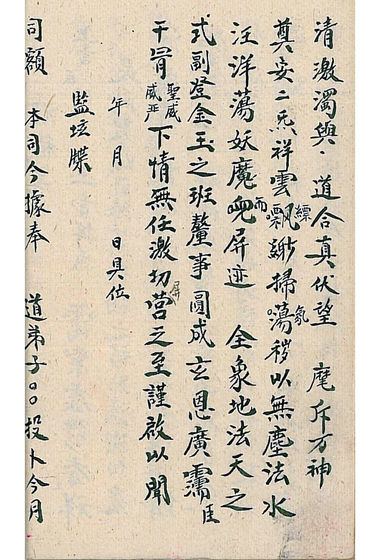 清激濁與〻道合真伏望 麾斥万神
奠安二炁祥雲縹飄緲掃氛蕩穢以無塵法水
汪洋蕩妖魔而屏迹 全象地法天之
式副登金玉之班釐事圓成玄恩廣霈臣
干冐聖威威严下情無任激切屏營之至謹啟以聞
年 月 日具位
監坛牒
司額 本司今據奉 道弟子〇〇投卜今月